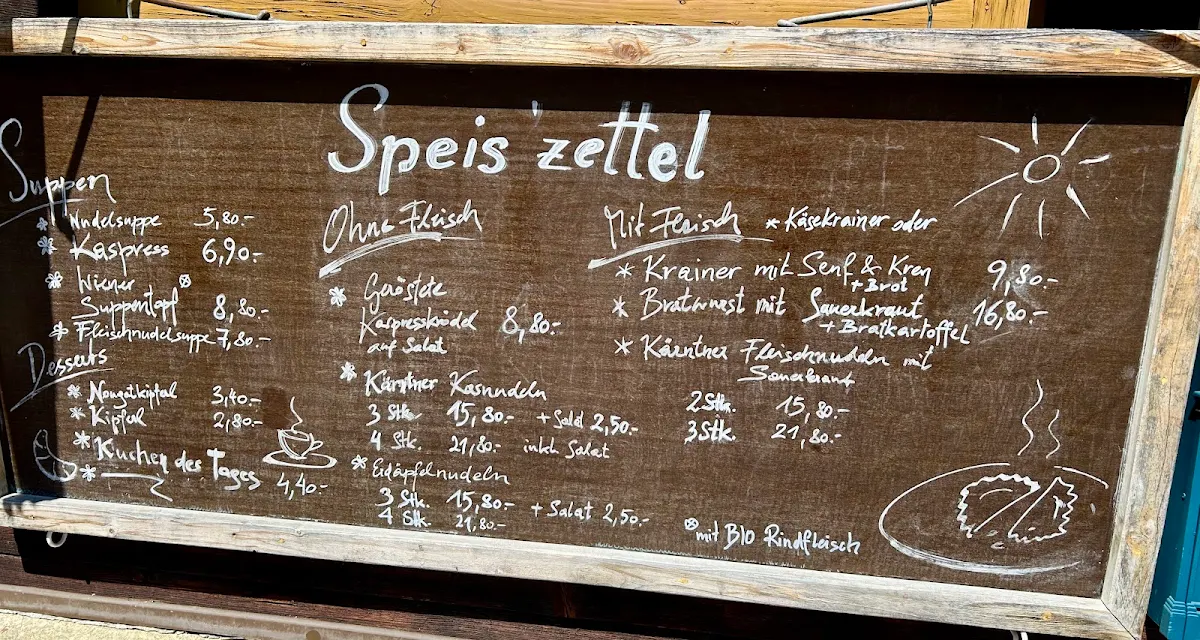 Speis'zettel
Suppen
* Nudelsuppe 5,80.-
* Kaspress 6,90.-
* Wiener ⊗
Suppentopf 8,80.-
* Fleischnudelsuppe 7,80.-
Desserts
* Nougatkipferl 3,40.-
* Kipferl 2,80.-
* Kuchen des Tages
* 4,40.-
Ohne Fleisch
* Geröstete
Kaspressknödel 8,80.-
auf Salat
* Kärntner Kasnudeln
3 Stk. 15,80.- + Salat 2,50.-
4 Stk. 21,80.- inkl. Salat
* Erdäpfelnudeln
3 Stk. 15,80.- + Salat 2,50.-
4 Stk. 21,80.-
Mit Fleisch * Käsekrainer oder
* Krainer mit Senf & Kren 9,80.-
+ Brot
* Bratwurst mit Sauerkraut 16,80.-
+ Bratkartoffel
* Kärntner Fleischnudeln mit
Sauerkraut
2 Stk. 15,80.-
3 Stk. 21,80.-
⊗ mit BIO Rindfleisch